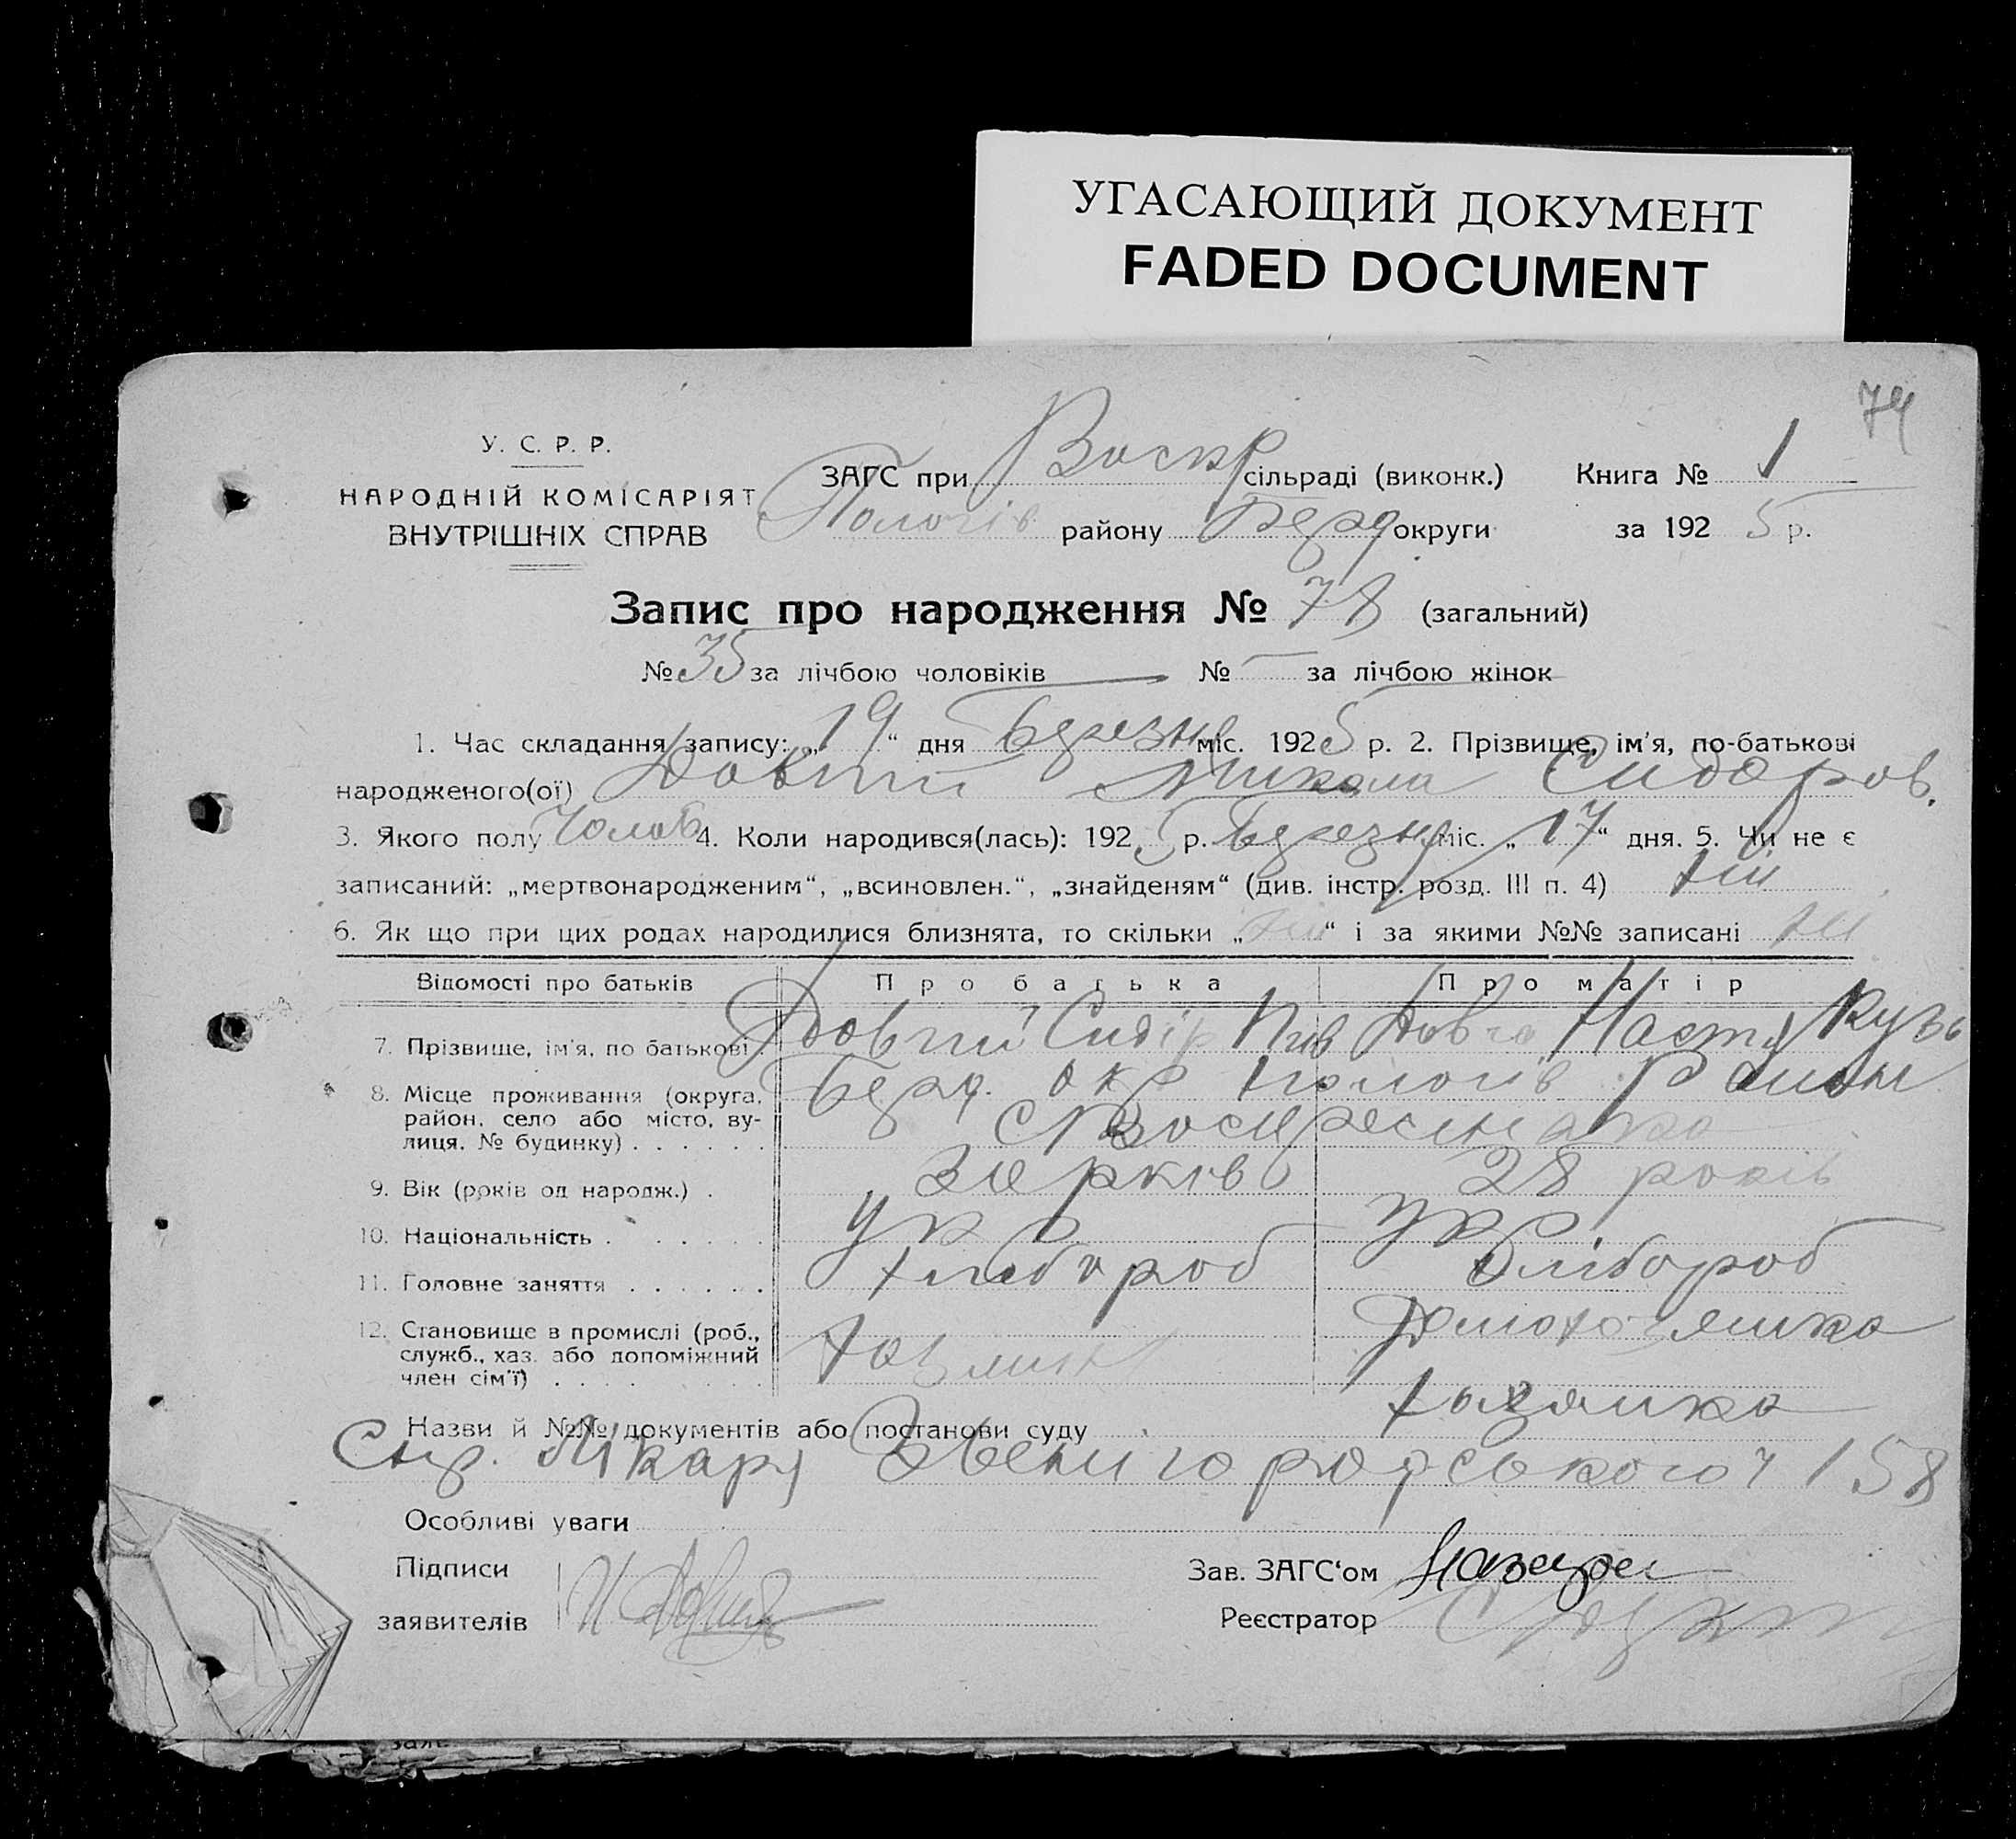 УГАСАЮЩИЙ ДОКУМЕНТ
FADED DOCUMENT
74
У. С. Р. Р.
НАРОДНІЙ КОМІСАРІЯТ
ВНУТРІШНІХ СПРАВ
ЗАГС при Воскр сільраді (виконк.) Книга № 1
Пологів району Берд округи за 192 5 р.
Запис про народження № 78 (загальний)
№ 35 за лічбою чоловіків № — за лічбою жінок
1. Час складання запису: „19“ дня Березня міс. 1925 р. 2. Прізвище, ім'я, по-батькові
народженого(ої) Довгий Микола Сидоров.
3. Якого полу Чолов 4. Коли народився(лась): 192 5 р. Березня міс. „17“ дня. 5. Чи не є
записаний: „мертвонародженим“, „всиновлен.“, „знайденям“ (див. інстр. розд. III п. 4) Ні
6. Як що при цих родах народилися близнята, то скільки „Ні“ і за якими №№ записані Ні
Відомості про батьків Про батька Про матір
7. Прізвище, ім'я, по батькові. Довгий Сидір Довга Настя Кузь
8. Місце проживання (округа, Берд. окр Пологів Район
район, село або місто, ву-
лиця, № будинку) . . . . . . с Воскресенка
9. Вік (років од народж.) . 28 років
10. Національність . . . . . . укр укр
11. Головне заняття . . . . . . Хлібороб Хлібороб
12. Становище в промислі (роб.,
служб., хаз. або допоміжний
член сім'ї) . . . . . . Хазяїн Домохазяйка
Хазяйка
Назви й №№ документів або постанови суду
Лікаря Звенигородського ч 158
Особливі уваги
Підписи Зав. ЗАГС‘ом
заявителів Реєстратор